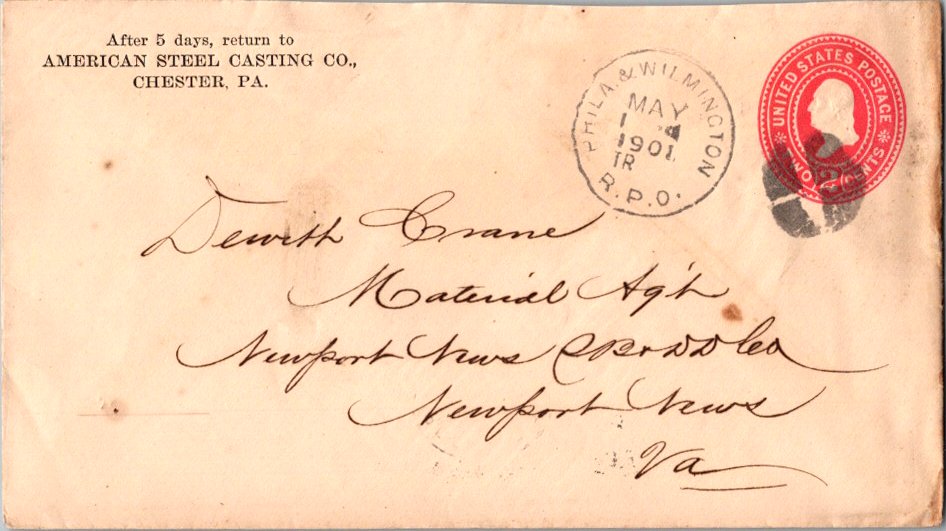 After 5 days, return to
AMERICAN STEEL CASTING CO.,
CHESTER, PA.
PHILA. & WILMINGTON
MAY
1
1901
TR
R.P.O.
UNITED STATES POSTAGE
TWO 2 CENTS
Dewith Crane
Material Ag't
Newport News S.B. & D.D. Co
Newport News
Va